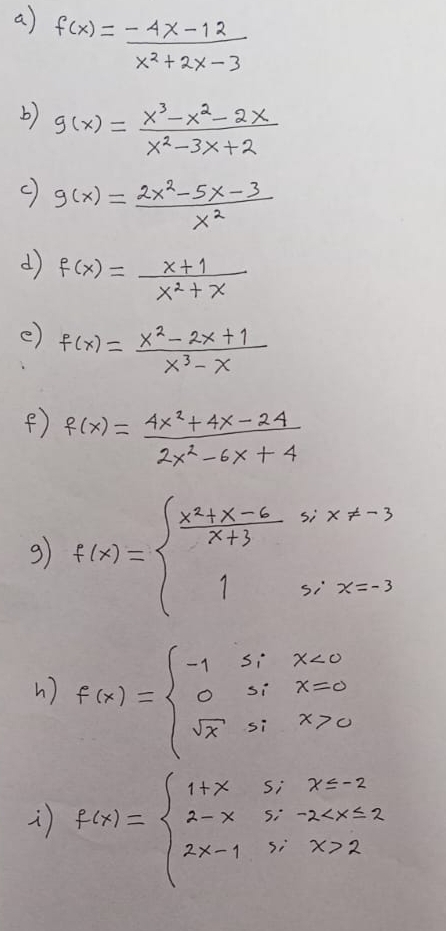 a) f(x) = (-4x-12)/(x²+2x-3)
b) g(x) = (x³-x²-2x)/(x²-3x+2)
c) g(x) = (2x²-5x-3)/x²
d) f(x) = (x+1)/(x²+x)
e) f(x) = (x²-2x+1)/(x³-x)
f) f(x) = (4x²+4x-24)/(2x²-6x+4)
g) f(x) = { (x²+x-6)/(x+3) si x≠-3
1 si x=-3
h) f(x) = { -1 si x<0
0 si x=0
√x si x>0
i) f(x) = { 1+x si x≤-2
2-x si -2<x≤2
2x-1 si x>2